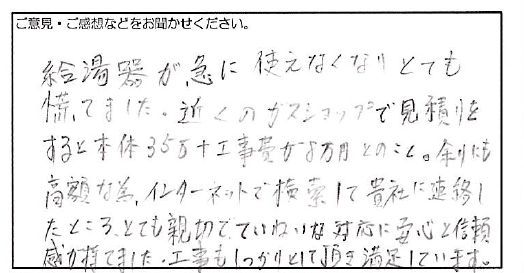 ご意見・ご感想などをお聞かせください。
給湯器が急に使えなくなりとても
慌てました。近くのガスショップで見積りを
すると本体35万+工事費が8万円とのこと。余りにも
高額な為、インターネットで検索して貴社に連絡し
たところ、とても親切でていねいな対応に安心と信頼
感が持てました。工事もしっかりとして頂き満足しています。